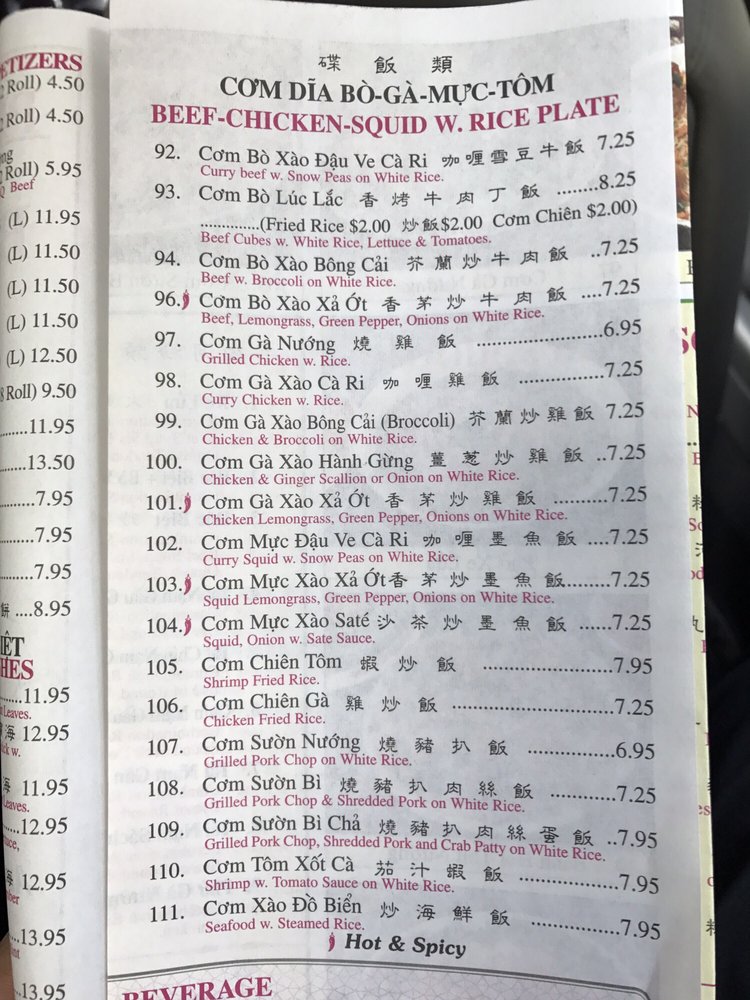 ETIZERS
Roll) 4.50
Roll) 4.50
Roll) 5.95
Beef
(L) 11.95
(L) 11.50
(L) 11.50
(L) 11.50
(L) 12.50
Roll) 9.50
.........11.95
.........13.50
.......7.95
.......7.95
.......7.95
餅 ....8.95
IỆT
HES
.......11.95
Leaves.
海 12.95
w.
海 11.95
Leaves.
......12.95
海 12.95
....13.95
....13.95
碟 飯 類
CƠM DĨA BÒ-GÀ-MỰC-TÔM
BEEF-CHICKEN-SQUID W. RICE PLATE
92. Cơm Bò Xào Đậu Ve Cà Ri 咖喱雪豆牛飯 7.25
Curry beef w. Snow Peas on White Rice.
93. Cơm Bò Lúc Lắc 香烤牛肉丁飯 ........8.25
..............(Fried Rice $2.00 炒飯$2.00 Cơm Chiên $2.00)
Beef Cubes w. White Rice, Lettuce & Tomatoes.
94. Cơm Bò Xào Bông Cải 芥蘭炒牛肉飯 ..7.25
Beef w. Broccoli on White Rice.
96. Cơm Bò Xào Xả Ớt 香茅炒牛肉飯 ....7.25
Beef, Lemongrass, Green Pepper, Onions on White Rice.
97. Cơm Gà Nướng 燒雞飯 ..................6.95
Grilled Chicken w. Rice.
98. Cơm Gà Xào Cà Ri 咖喱雞飯 ..............7.25
Curry Chicken w. Rice.
99. Cơm Gà Xào Bông Cải (Broccoli) 芥蘭炒雞飯 7.25
Chicken & Broccoli on White Rice.
100. Cơm Gà Xào Hành Gừng 薑蔥炒雞飯 ..7.25
Chicken & Ginger Scallion or Onion on White Rice.
101. Cơm Gà Xào Xả Ớt 香茅炒雞飯 ...........7.25
Chicken Lemongrass, Green Pepper, Onions on White Rice.
102. Cơm Mực Đậu Ve Cà Ri 咖喱墨魚飯 ....7.25
Curry Squid w. Snow Peas on White Rice.
103. Cơm Mực Xào Xả Ớt香茅炒墨魚飯........7.25
Squid Lemongrass, Green Pepper, Onions on White Rice.
104. Cơm Mực Xào Saté 沙茶炒墨魚飯 ......7.25
Squid, Onion w. Sate Sauce.
105. Cơm Chiên Tôm 蝦炒飯 ...................7.95
Shrimp Fried Rice.
106. Cơm Chiên Gà 雞炒飯 .......................7.25
Chicken Fried Rice.
107. Cơm Sườn Nướng 燒豬扒飯 ...............6.95
Grilled Pork Chop on White Rice.
108. Cơm Sườn Bì 燒豬扒肉絲飯 .............7.25
Grilled Pork Chop & Shredded Pork on White Rice.
109. Cơm Sườn Bì Chả 燒豬扒肉絲蛋飯 ..7.95
Grilled Pork Chop, Shredded Pork and Crab Patty on White Rice.
110. Cơm Tôm Xốt Cà 茄汁蝦飯 ..............7.95
Shrimp w. Tomato Sauce on White Rice.
111. Cơm Xào Đồ Biển 炒海鮮飯 .............7.95
Seafood w. Steamed Rice.
Hot & Spicy
BEVERAGE